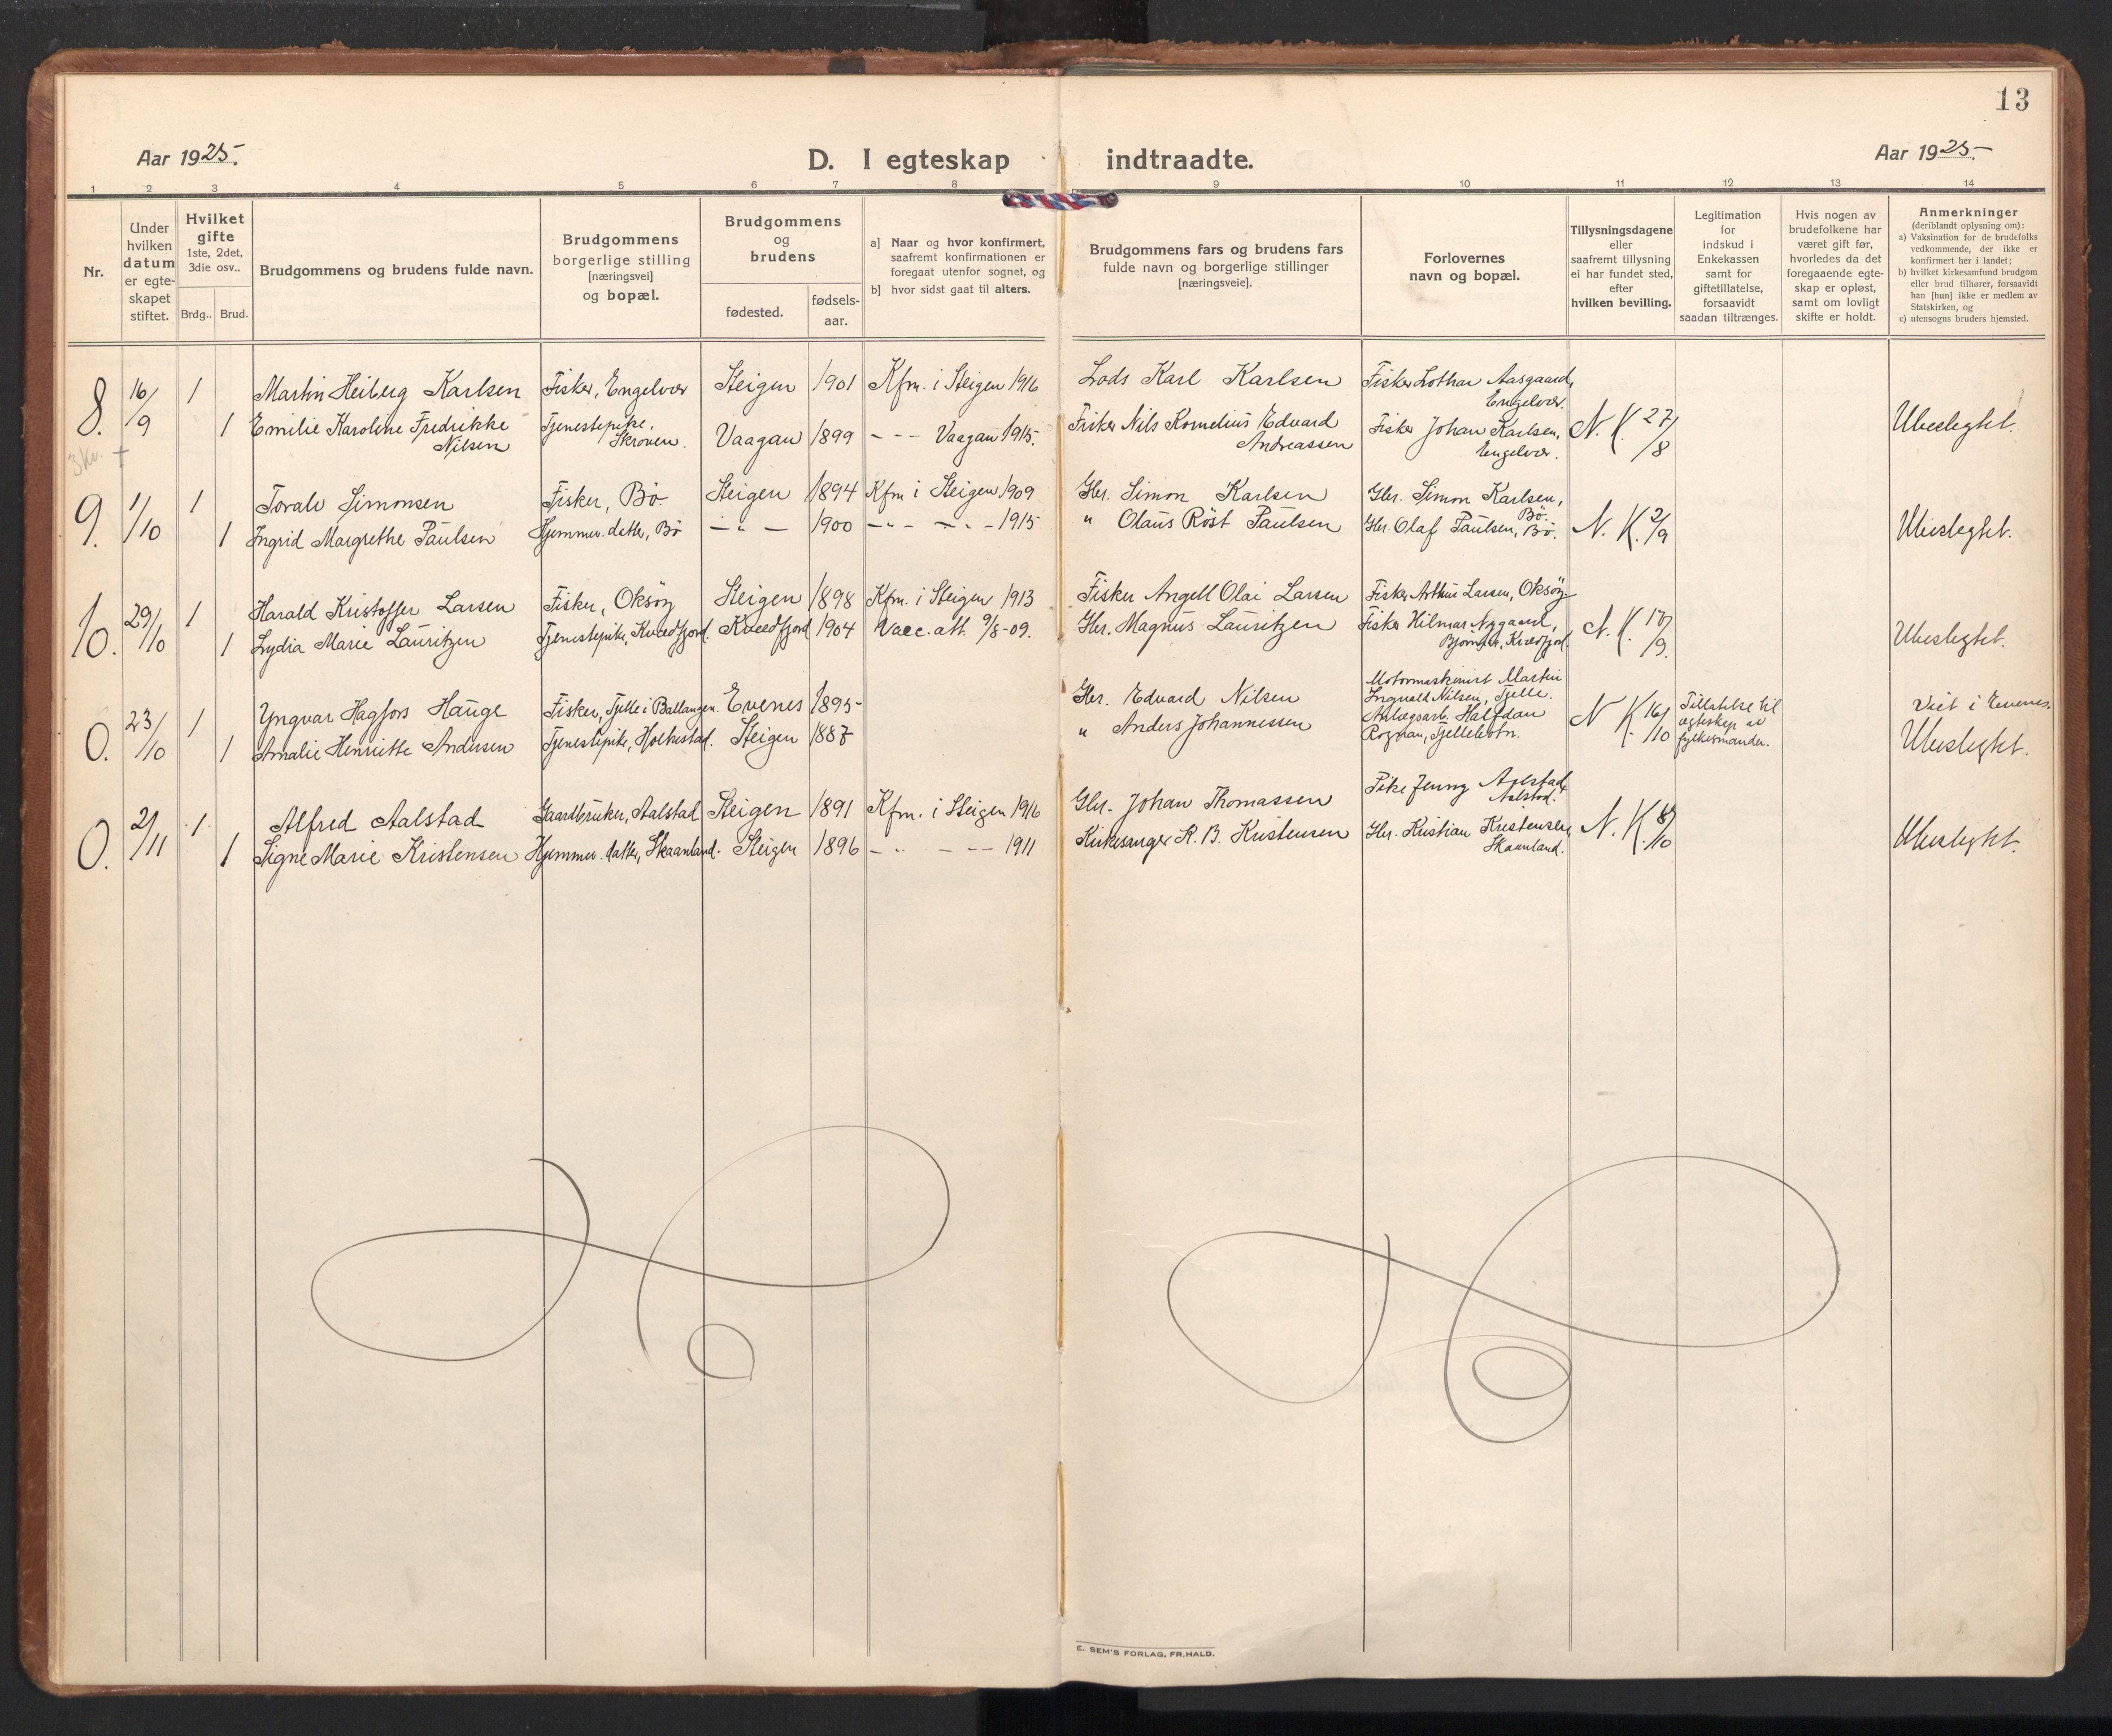 13
Aar 1925.
D. I egteskap indtraadte.
Aar 1925.
1 2 3 4 5 6 7 8 9 10 11 12 13 14
Nr.
Under hvilken datum er egteskapet stiftet.
Hvilket gifte
1ste, 2det, 3die osv..
Brdg.. Brud.
Brudgommens og brudens fulde navn.
Brudgommens borgerlige stilling [næringsvei] og bopæl.
Brudgommens og brudens
fødested. fødsels-aar.
a] Naar og hvor konfirmert, saafremt konfirmationen er foregaat utenfor sognet, og
b] hvor sidst gaat til alters.
Brudgommens fars og brudens fars fulde navn og borgerlige stillinger [næringsveie].
Forlovernes navn og bopæl.
Tillysningsdagene eller saafremt tillysning ei har fundet sted, efter hvilken bevilling.
Legitimation for indskud i Enkekassen samt for giftetillatelse, forsaavidt saadan tiltrænges.
Hvis nogen av brudefolkene har været gift før, hvorledes da det foregaaende egteskap er opløst, samt om lovligt skifte er holdt.
Anmerkninger
(deriblandt oplysning om):
a) Vaksination for de brudefolks vedkommende, der ikke er konfirmert her i landet;
b) hvilket kirkesamfund brudgom eller brud tilhører, forsaavidt han [hun] ikke er medlem av Statskirken, og
c) utensogns bruders hjemsted.
8. 16/9 1 Martin Heiberg Karlsen Fisker, Engelvær Steigen 1901 Kfm. i Steigen 1916 Lods Karl Karlsen Fisker Lothar Aasgaard, Engelvær.
1 Emilie Karoline Fredrikke Nilsen Tjenestepike, Skroven. Vaagan 1899 - - - Vaagan 1915. Fisker Nils Kornelius Edvard Andreassen Fisker Johan Karlsen, Engelvær. N. K. 27/8 Ubeslegtet.
9. 1/10 1 Toralv Simonsen Fisker, Bø. Steigen 1894 Kfm i Steigen 1909 Gbr. Simon Karlsen Gbr. Simon Karlsen, Bø.
1 Ingrid Margrethe Paulsen Hjemmev. datter, Bø — " — 1900 — " — — " — 1915 " Olaus Röst Paulsen Gbr. Olaf Paulsen, Bø. N. K. 2/9 Ubeslegtet.
10. 29/10 1 Harald Kristoffer Larsen Fisker, Oksøy Steigen 1898 Kfm. i Steigen 1913 Fisker Angell Olai Larsen Fisker Arthur Larsen, Oksöy
1 Lydia Marie Lauritzen Tjenestepike, Kvædfjord. Kvædfjord 1904 Vacc. att. 9/8-09. Gbr. Magnus Lauritzen Fisker Hilmar Nygaard, Kvædfjord. N. K. 17/9. Ubeslegtet.
0. 23/10 1 Yngvar Hagfors Hauge Fisker, Tjelle i Ballangen. Evenes 1895 Gbr. Edvard Nilsen Motormaskinist Martin Ingvald Nilsen, Tjelle. Viet i Evenes.
1 Amalie Henriette Andersen Tjenestepike, Holkestad. Steigen 1887 " Anders Johannessen Anlægsarb. Halfdan Rognan, Tjellebotn. N. K. 16/10 Tillatelse til egteskap av fylkesmanden. Ubeslegtet.
0. 2/11 1 Alfred Aalstad Gaardbruker, Aalstad Steigen 1891 Kfm. i Steigen 1916 Gbr. Johan Thomassen Pike Jenny Aalstad, Aalstad.
1 Signe Marie Kristensen Hjemmev. datter, Skaanland. Steigen 1896 — " — — — 1911 Kirkesanger R. B. Kristensen Gbr. Kristian Kristensen, Skaanland. N. K. 8/10 Ubeslegtet.
E. SEM'S FORLAG, FR.HALD.